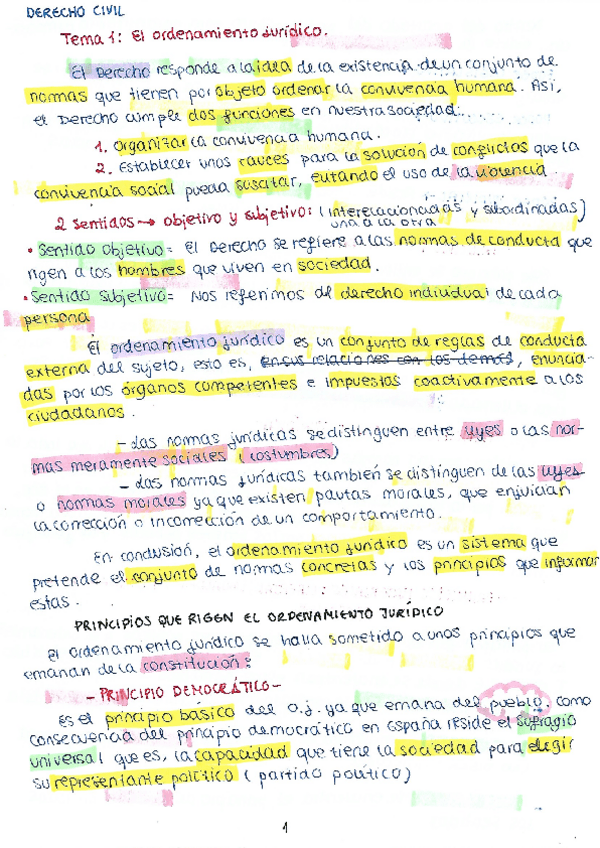 DERECHO CIVIL
Tema 1: El ordenamiento jurídico.
El Derecho responde a la idea de la existencia de un conjunto de
normas que tienen por objeto ordenar la convivencia humana. Así,
el Derecho cumple dos funciones en nuestra sociedad:
1. Organizar la convivencia humana.
2. Establecer unos cauces para la solución de conflictos que la
convivencia social pueda suscitar, evitando el uso de la violencia.
2 sentidos → objetivo y subjetivo: (interelacionadas y subordinadas)
una a la otra
• Sentido objetivo = El Derecho se refiere a las normas de conducta que
rigen a los hombres que viven en sociedad.
• Sentido subjetivo = Nos referimos al derecho individual de cada
persona
El ordenamiento jurídico es un conjunto de reglas de conducta
externa del sujeto, esto es, en sus relaciones con los demás, enuncia-
das por los órganos competentes e impuestas coactivamente a los
ciudadanos.
- Las normas jurídicas se distinguen entre leyes o las nor-
mas meramente sociales (costumbres)
- Las normas jurídicas también se distinguen de las leyes
o normas morales ya que existen pautas morales, que enjuician
la corrección o incorrección de un comportamiento.
En conclusión, el ordenamiento jurídico es un sistema que
pretende el conjunto de normas concretas y los principios que informan
estas.
PRINCIPIOS QUE RIGEN EL ORDENAMIENTO JURÍDICO
El ordenamiento jurídico se halla sometido a unos principios que
emanan de la constitución:
- PRINCIPIO DEMOCRÁTICO -
Es el principio básico del o.j. ya que emana del pueblo, como
consecuencia del principio democrático en España reside el sufragio
universal que es, la capacidad que tiene la sociedad para elegir
su representante político (partido político)
1